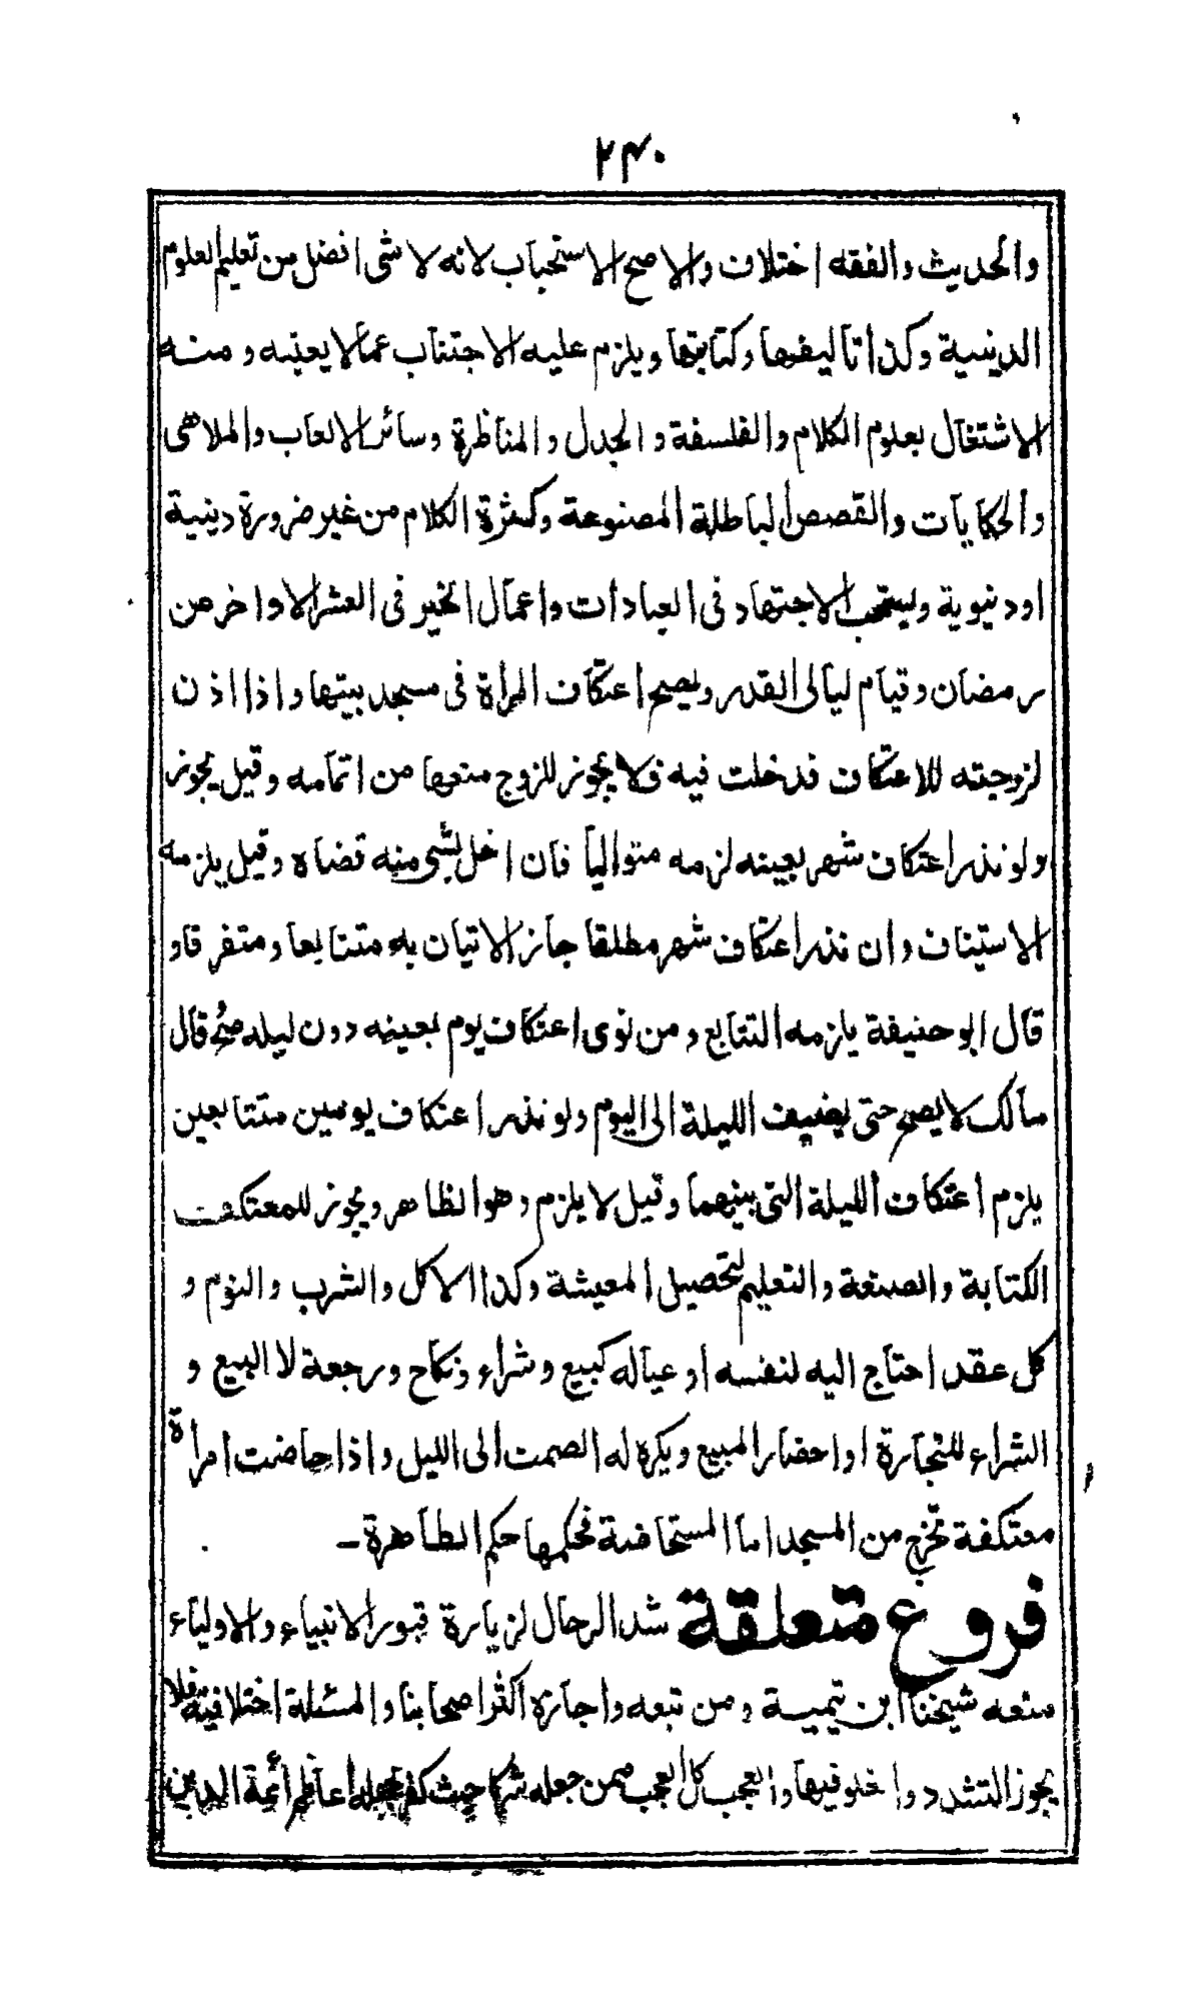 ٢٤٠
والحديث والفقه اختلاف والاصح الاستحباب لانه لا شى افضل من تعليم العلوم
الدينية وكذا تاليفها وكتابتها ويلزم عليه الاجتناب عما لا يعنيه ومنه
الاشتغال بعلوم الكلام والفلسفة والجدل والمناظرة وسائر الالعاب والملاهى
والحكايات والقصص الباطلة المصنوعة وكثرة الكلام من غير ضرورة دينية
او دنيوية ويستحب الاجتهاد فى العبادات واعمال الخير فى العشر الاواخر من
رمضان وقيام ليالى القدر ويصح اعتكاف المرأة فى مسجد بيتها واذا اذن
لزوجته للاعتكاف فدخلت فيه فلا يجوز للزوج منعها من اتمامه وقيل يجوز
ولو نذر اعتكاف شهر بعينه لزمه متواليا فان اخل بشى منه قضاه وقيل يلزمه
الاستيناف وان نذر اعتكاف شهر مطلقا جاز الاتيان به متتابعا ومتفرقا و
قال ابو حنيفة يلزمه التتابع ومن نوى اعتكاف يوم بعينه دون ليله صح قال
مالك لا يصح حتى يضيف الليلة الى اليوم ولو نذر اعتكاف يومين متتابعين
يلزم اعتكاف الليلة التى بينهما وقيل لا يلزم وهو الظاهر ويجوز للمعتكف
الكتابة والصنعة والتعليم لتحصيل المعيشة وكذا الاكل والشرب والنوم و
كل عقد احتاج اليه لنفسه او عياله كبيع وشراء ونكاح ورجعة لا البيع و
الشراء للتجارة او احضار المبيع ويكره له الصمت الى الليل واذا حاضت امرأة
معتكفة تخرج من المسجد اما المستحاضة فحكمها حكم الطاهرة ـ
فروع متعلقة شد الرحال لزيارة قبور الانبياء والاولياء
منعه شيخنا ابن تيمية ومن تبعه واجازه اكثر اصحابنا والمسئلة اختلافية فلا
يجوز التشدد والغلو فيها والعجب كل العجب ممن جعله شركا حيث كفر اعاظم أئمة الدين